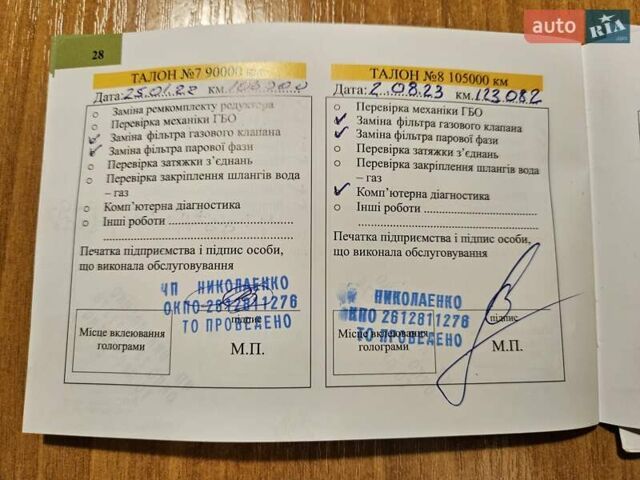 auto RIA.com
28
ТАЛОН №7 90000 км
Дата: 25.01.22 км. 108000
Заміна ремкомплекту редуктора
Перевірка механіки ГБО
Заміна фільтра газового клапана
Заміна фільтра парової фази
Перевірка затяжки з’єднань
Перевірка закріплення шлангів вода
– газ
Комп’ютерна діагностика
Інші роботи
Печатка підприємства і підпис особи,
що виконала обслуговування
ЧП НИКОЛАЕНКО
ОКПО 2612811276
підпис
ТО ПРОВЕДЕНО
Місце вклеювання
голограми
М.П.
ТАЛОН №8 105000 км
Дата: 2.08.23 км. 123.082
Перевірка механіки ГБО
Заміна фільтра газового клапана
Заміна фільтра парової фази
Перевірка затяжки з’єднань
Перевірка закріплення шлангів вода
– газ
Комп’ютерна діагностика
Інші роботи
Печатка підприємства і підпис особи,
що виконала обслуговування
НИКОЛАЕНКО
ОКПО 2612811276
підпис
ТО ПРОВЕДЕНО
Місце вклеювання
голограми
М.П.